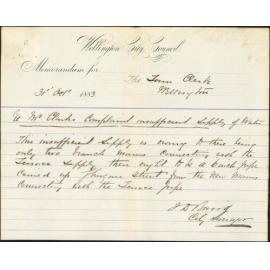 Wellington City Council.
Memorandum for
The Town Clerk
31st Octr 1883 Wellington
re Mr Clarks Complaint insufficient Supply of Water
This insufficient Supply is owing to there being
only two branch mains connecting with the
Terrace Supply there ought to be a 6 inch pipe
carried up street from the New Mains
Connecting with the Terrace pipe
City Surveyor